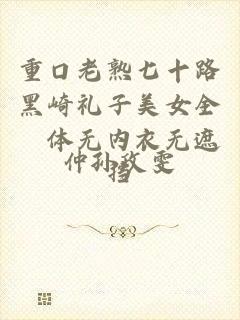 重口老熟七十路
黑崎礼子美女全
体无内衣无遮
挡
仲孙玫雯